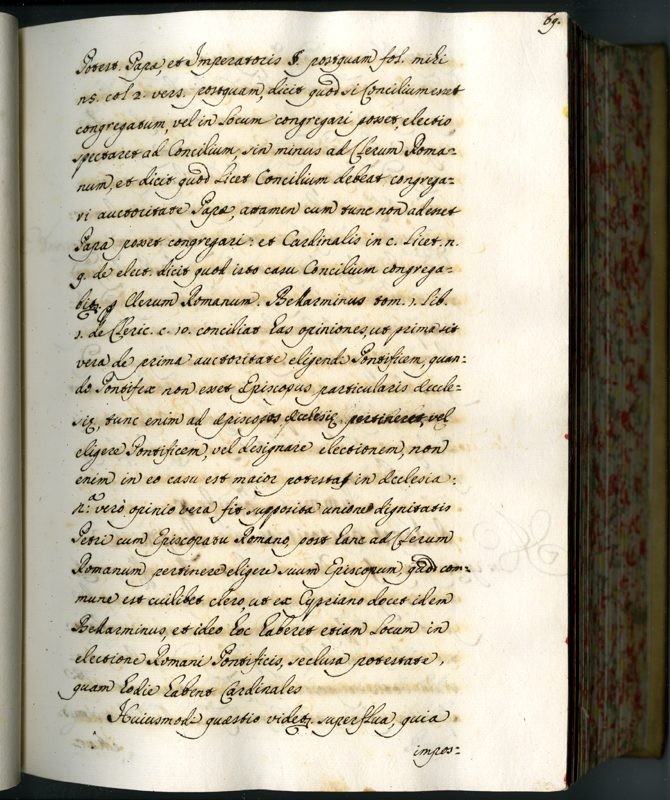 69.
Potest. Papæ, et Imperatoris §. postquam fol. mihi
n5. col 2. vers. postquam, dicit quod si Concilium esset
congregatum, vel in locum congregari posset, electio
spectaret ad Concilium, sin minus ad Clerum Roma=
num, et dicit quod licet Concilium debeat congrega=
ri auctoritate Papæ, attamen cum tunc non adesset
Papa posset congregari: et Cardinalis in c. Licet. n.
9. de elect. dicit quod isto casu Concilium congrega=
bitr. p Clerum Romanum. Bellarminus tom. 1. lib.
1. de Cleric. c. 10. conciliat has opiniones, ut prima sit
vera de prima auctoritate eligendi Pontificem, quan=
do Pontifex non esset Episcopus particularis Eccle=
siæ, tunc enim ad episcopos Ecclesiæ pertineret, vel
eligere Pontificem, vel designare electionem, non
enim in eo casu est maior potestas in Ecclesia:
2.a verò opinio vera fit supposita unione dignitatis
Petri cum Episcopatu Romano, post hanc ad Clerum
Romanum pertinere eligere suum Episcopum, quod com=
mune est cuilibet clero, ut ex Cypriano docet idem
Bellarminus, et ideo hoc haberet etiam locum in
electione Romani Pontificis, seclusa potestate,
quam hodie habent Cardinales
Huiusmodi quæstio videtr. superflua, quia
impos=